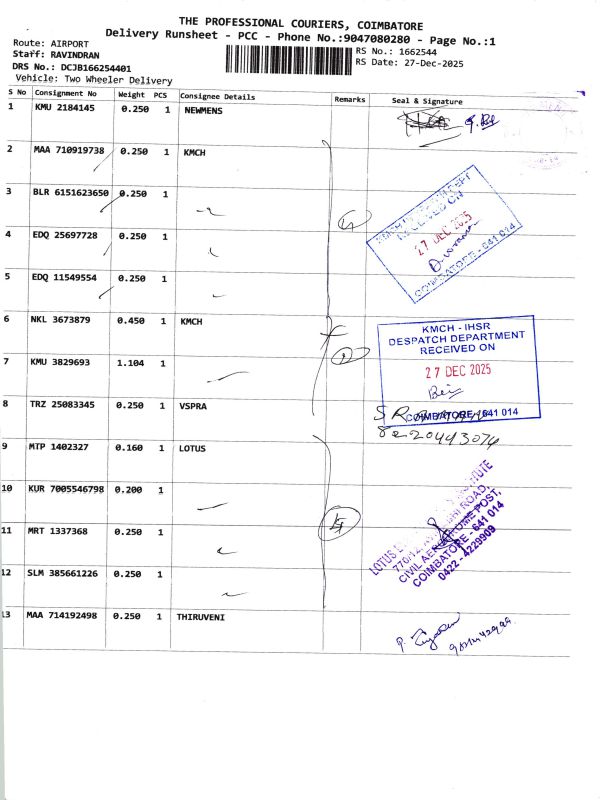 THE PROFESSIONAL COURIERS, COIMBATORE
Delivery Runsheet - PCC - Phone No.:9047080280 - Page No.:1
Route: AIRPORT
Staff: RAVINDRAN
DRS No.: DCJB166254401
Vehicle: Two Wheeler Delivery
RS No.: 1662544
RS Date: 27-Dec-2025
S No Consignment No Weight PCS Consignee Details Remarks Seal & Signature
1 KMU 2184145 0.250 1 NEWMENS
2 MAA 710919738 0.250 1 KMCH
3 BLR 6151623650 0.250 1
4 EDQ 25697728 0.250 1
5 EDQ 11549554 0.250 1
RECEIVED ON
27 DEC 2025
COIMBATORE - 641 014
6 NKL 3673879 0.450 1 KMCH
7 KMU 3829693 1.104 1
KMCH - IHSR
DESPATCH DEPARTMENT
RECEIVED ON
27 DEC 2025
COIMBATORE - 641 014
8 TRZ 25083345 0.250 1 VSPRA
8220443074
9 MTP 1402327 0.160 1 LOTUS
10 KUR 7005546798 0.200 1
11 MRT 1337368 0.250 1
12 SLM 385661226 0.250 1
LOTUS INSTITUTE
ROAD,
CIVIL AERODROME POST,
COIMBATORE - 641 014
0422 - 4229909
13 MAA 714192498 0.250 1 THIRUVENI